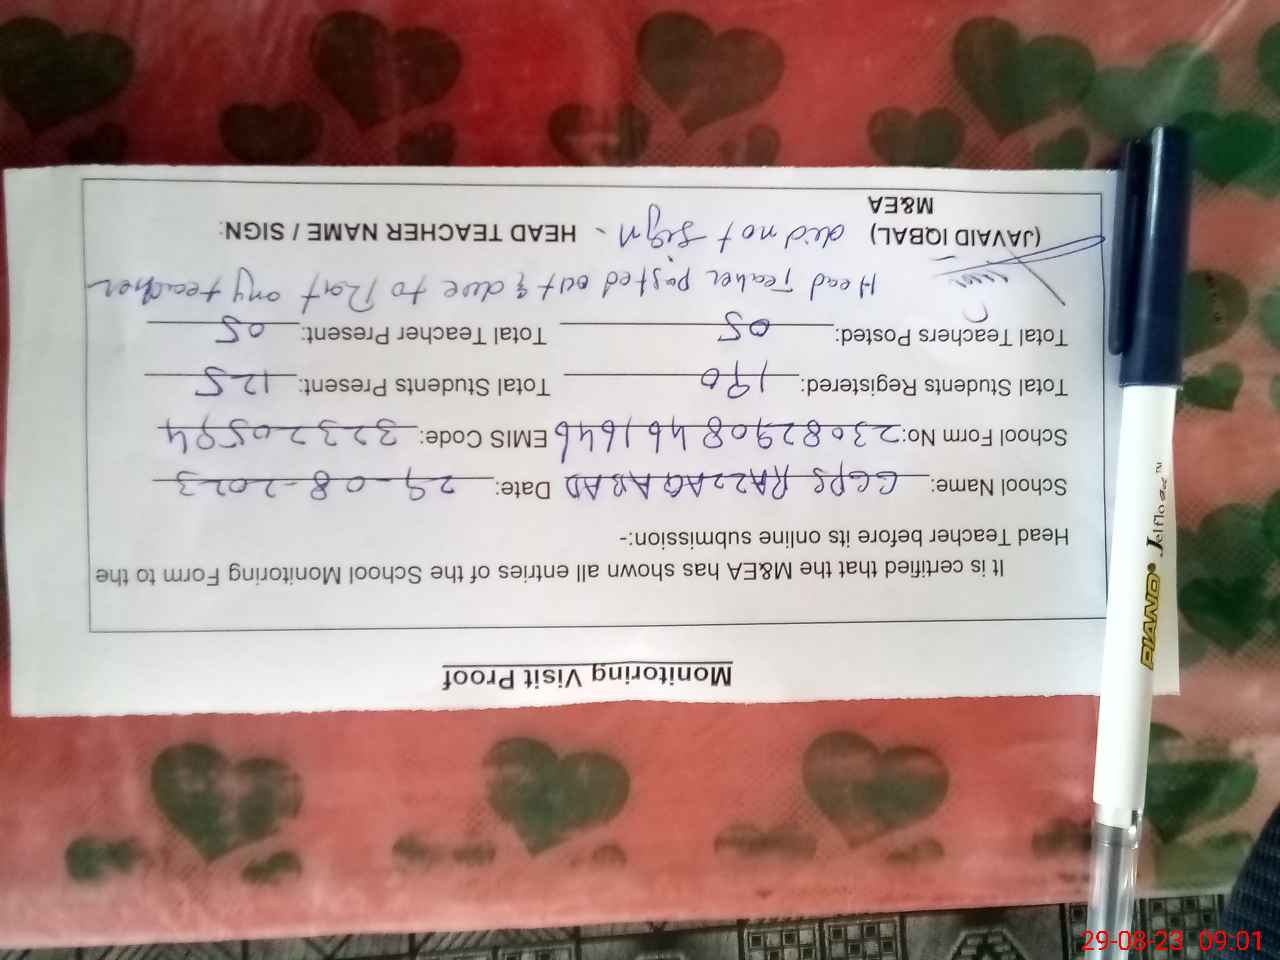 Monitoring Visit Proof
It is certified that the M&EA has shown all entries of the School Monitoring Form to the
Head Teacher before its online submission:-
School Name: GGPS RAZZAQABAD Date: 29-08-2023
School Form No: 23082908461646 EMIS Code: 32320594
Total Students Registered: 190 Total Students Present: 125
Total Teachers Posted: 05 Total Teacher Present: 05
Head Teacher posted out & due to that any teacher
(JAVAID IQBAL) did not sign - HEAD TEACHER NAME / SIGN:
M&EA
PIANO® Jelfloeee™
29-08-23 09:01